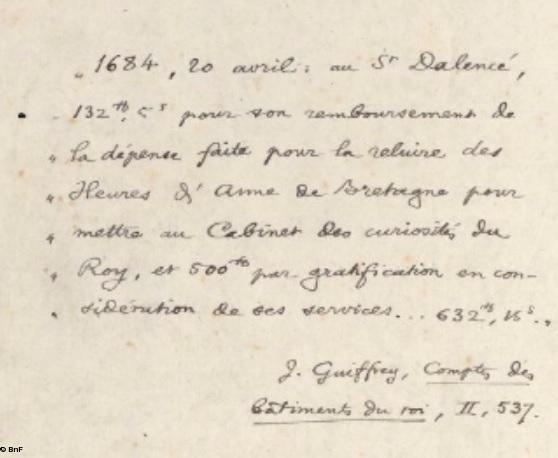 „ 1684, 20 avril: au Sr Dalencé,
„ 132tt, 5s pour son remboursement de
„ la dépense faite pour la reliure des
„ Heures d'Anne de Bretagne pour
„ mettre au Cabinet des curiosités du
„ Roy, et 500tt par gratification en con-
„ sidération de ses services... 632tt,
J. Guiffrey, Comptes des
bâtiments du roi, II, 537.
© BnF